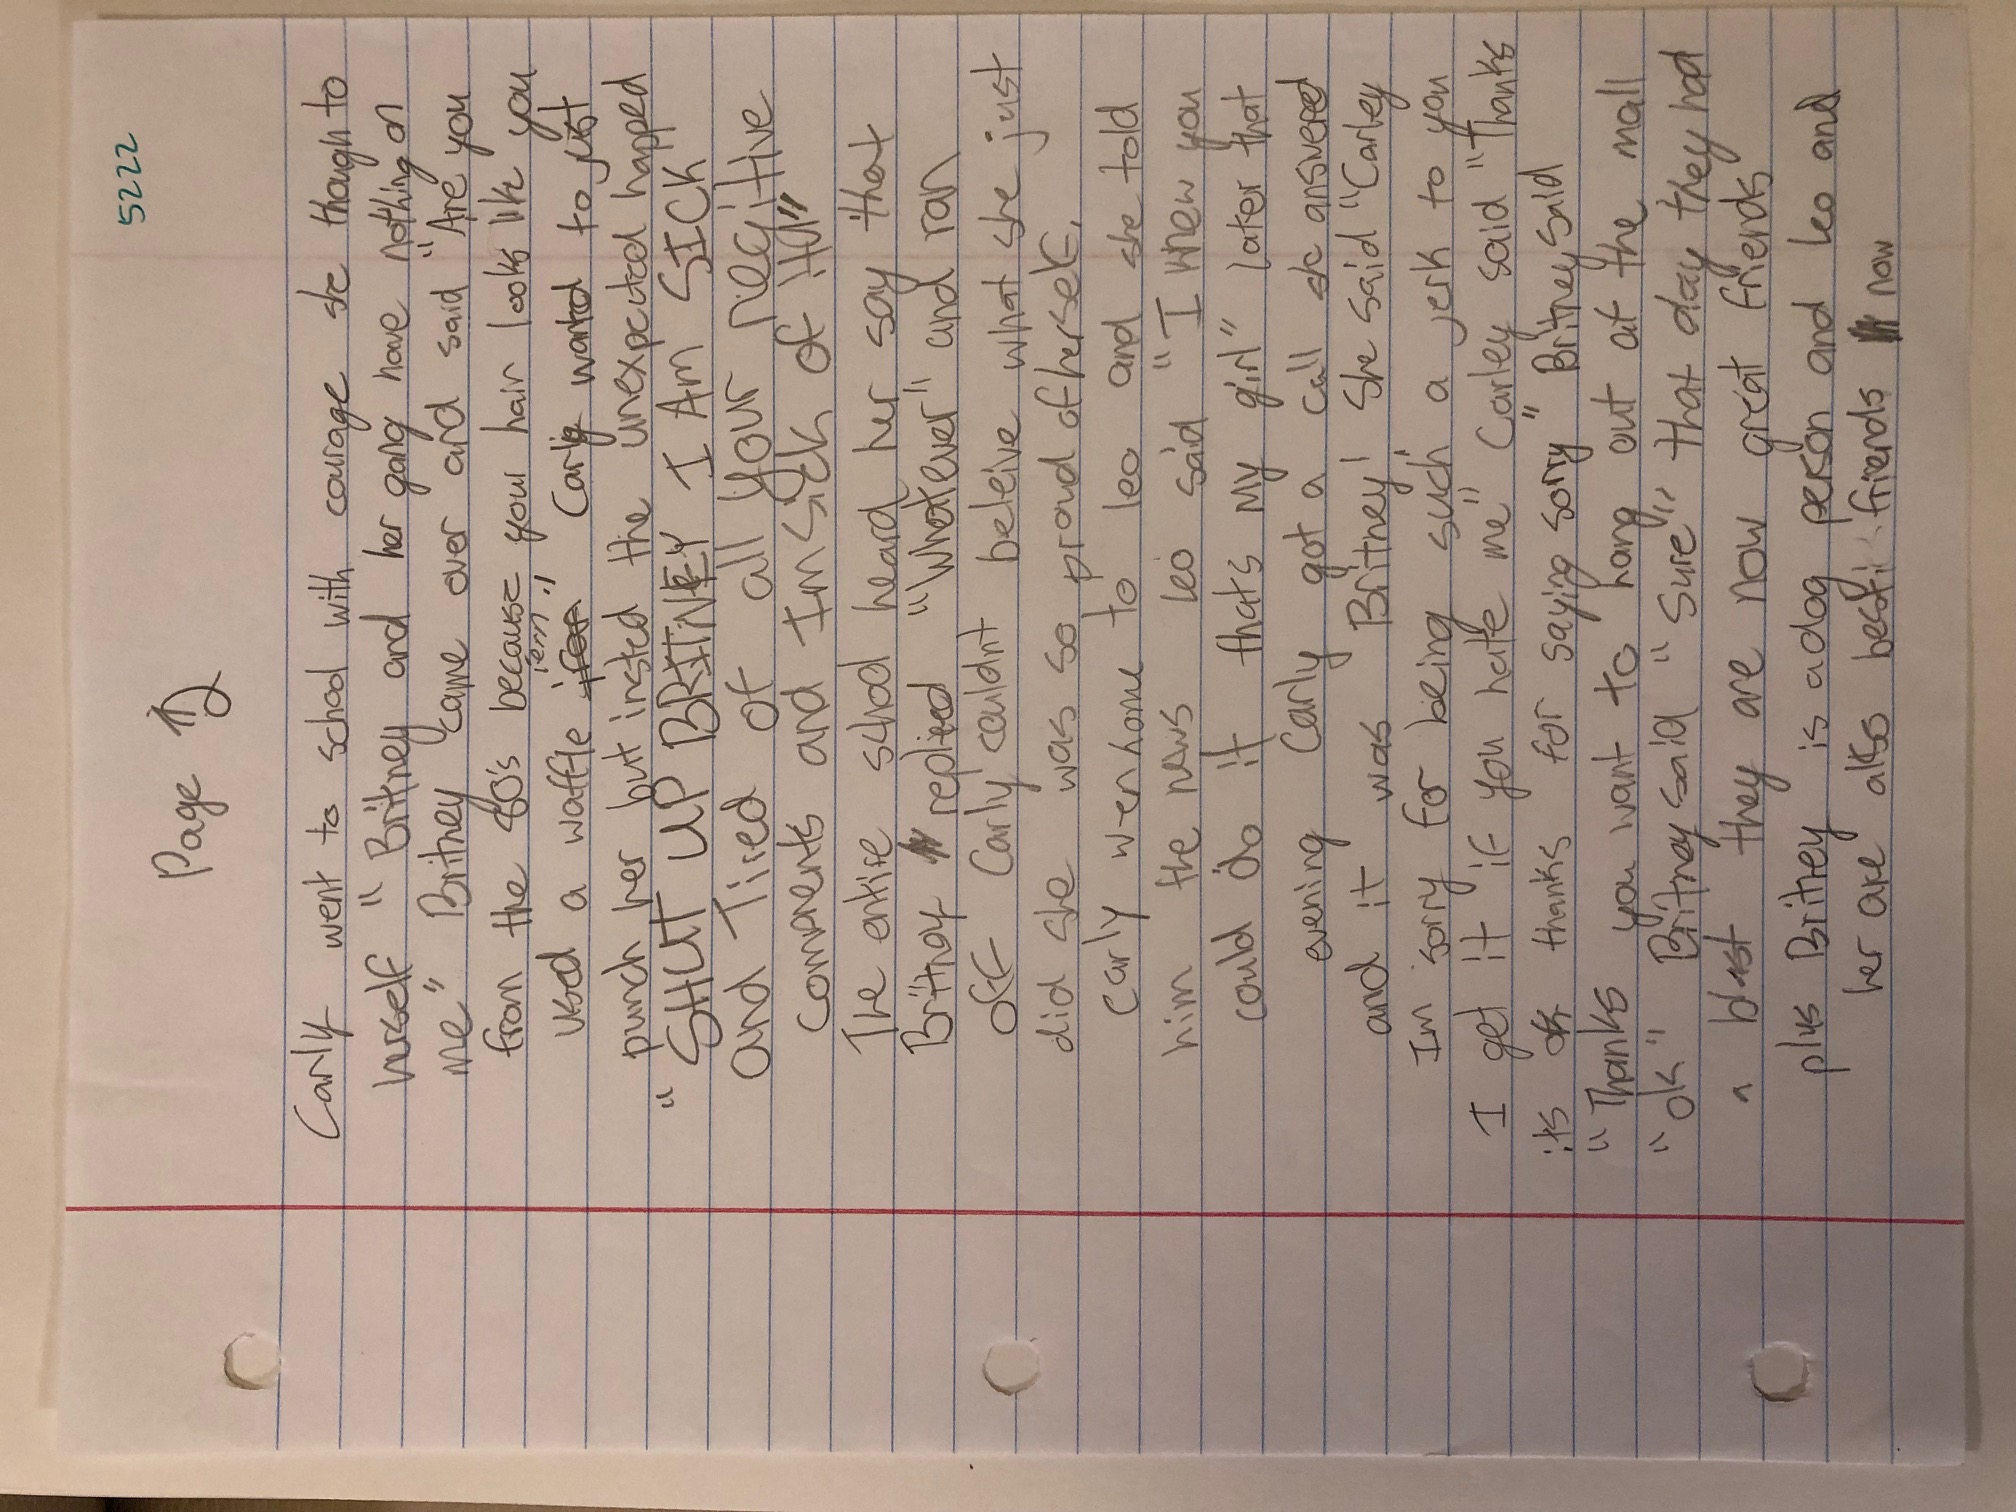 5222
Page 2
Carly went to school with courage she though to
hurself "Britney and her gang have nothing on
me" Britney came over and said "Are you
from the 80's because your hair looks like you
used a waffle iern" Carly wanted to just
punch her but insted the unexpected happed
"SHUT UP BRITNEY I AM SICK"
and Tired of all your negitive
comments and Im sick of
The entire school heard her say that
Britney replied "Whatever" and ran
off Carly couldnt beleive what she just
did she was so proud of herself.
Carly wen home to leo and she told
him the news leo said "I knew you
could do it thats my girl" later that
evening Carly got a call she answered
and it was Britney! She said "Carley
Im sorry for being such a jerk to you
I get it if you hate me" Carley said "Thanks
its ok thanks for saying sorry" Britney said
"Thanks you want to hang out at the mall
"ok" Britney said "Sure" that day they had
a blast they are now great friends
plus Britney is a dog person and leo and
her are also best friends now